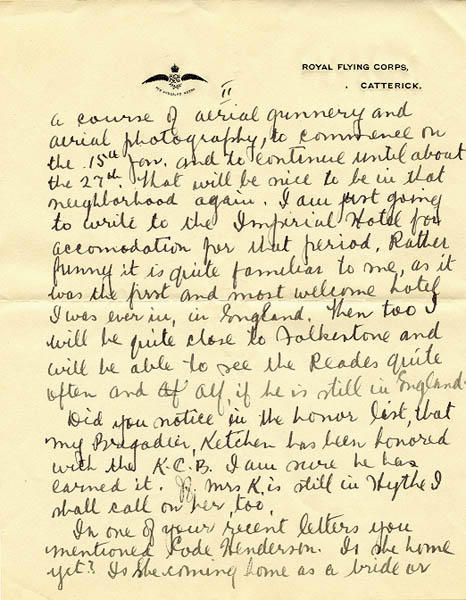 ROYAL FLYING CORPS,
CATTERICK.
II
a course of aerial gunnery and
aerial photography, to commence on
the 15th Jan. and to continue until about
the 27th. That will be nice to be in that
neighborhood again. I am just going
to write to the Imperial Hotel for
accomodation for that period. Rather
funny it is quite familiar to me, as it
was the first and most welcome hotel
I was ever in, in England. Then too I
will be quite close to Folkestone and
will be able to see the Reades quite
often and Alf, if he is still in England.
Did you notice in the honor list, that
my Bragadier, Ketchen has been honored
with the K.C.B. I am sure he has
earned it. If Mrs K. is still in Hythe I
shall call on her, too.
In one of your recent letters you
mentioned Henderson. Is she home
yet? Is she coming home as a bride or